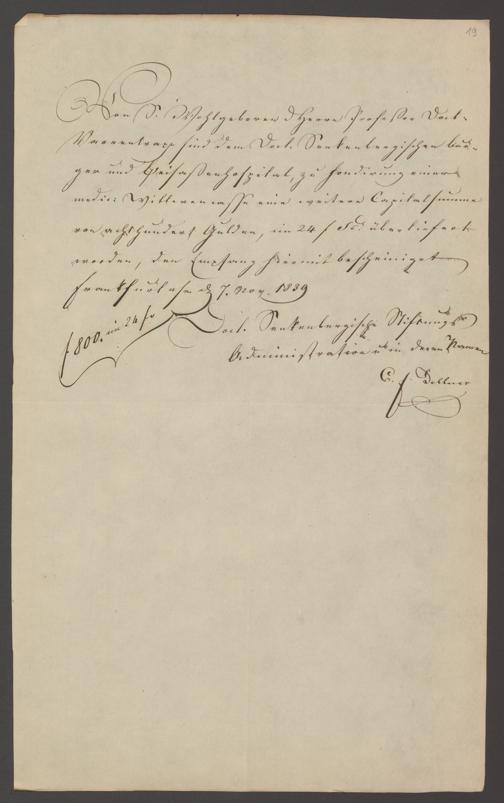 19
Von Sr Wohlgeboren d Herrn Professor Doct.
Varrentrapp sind dem Doct. Senkenbergischen Bür-
ger und Beisassenhospital, zu Fondirung einer
medic: Wittwencasse eine weitere Capitalsumme
von achthundert Gulden, im 24 f Fß. überliefert
worden, den Empfang hiermit bescheiniget
Frankfurt a/m d 7. Nov. 1839
f 800. im 24 f
Doct. Senkenbergische Stiftungs
Administration u in deren Namen
C. f.